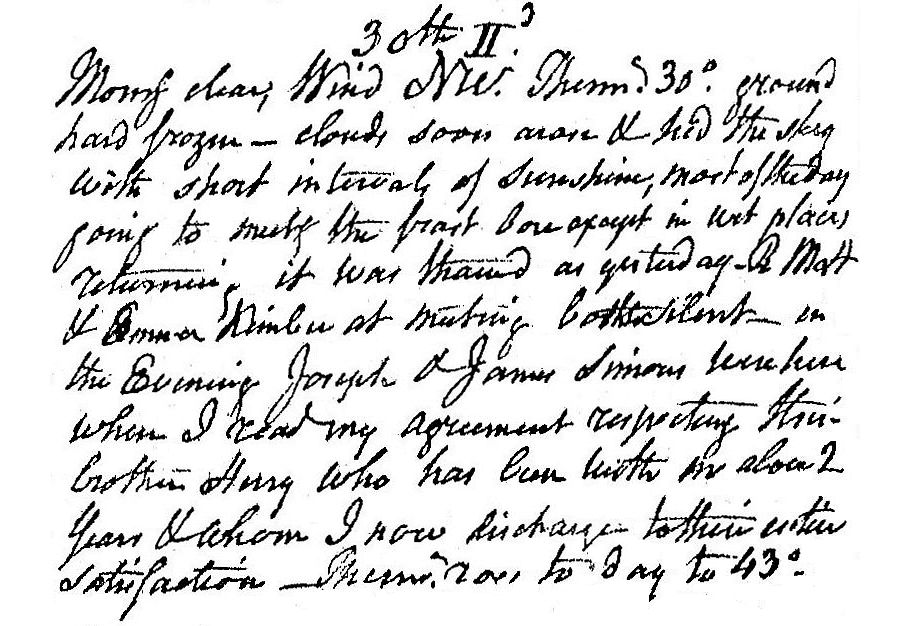 30th II.d
Morng clear, Wind NW. Therm'd 30°. ground
hard frozen — clouds soon arose & hid the sky
with short intervals of Sunshine, most of the day
going to meetg the frost bore except in wet places
returning it was thawed as yesterday - R Mott
& Emmer Kimber at meeting both silent — in
the Evening Joseph & James Simons were here
when I read my agreement respecting their
brother Henry who has been with me about 2
Years & whom I now discharge to their entire
Satisfaction — Therm'r. rose to day to 43°.